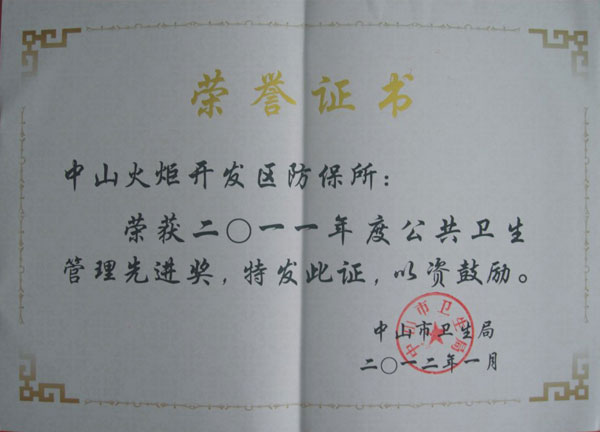 荣誉证书
中山火炬开发区防保所：
荣获二〇一一年度公共卫生
管理先进奖，特发此证，以资鼓励。
中山市卫生局
二〇一二年一月
中山市卫生局